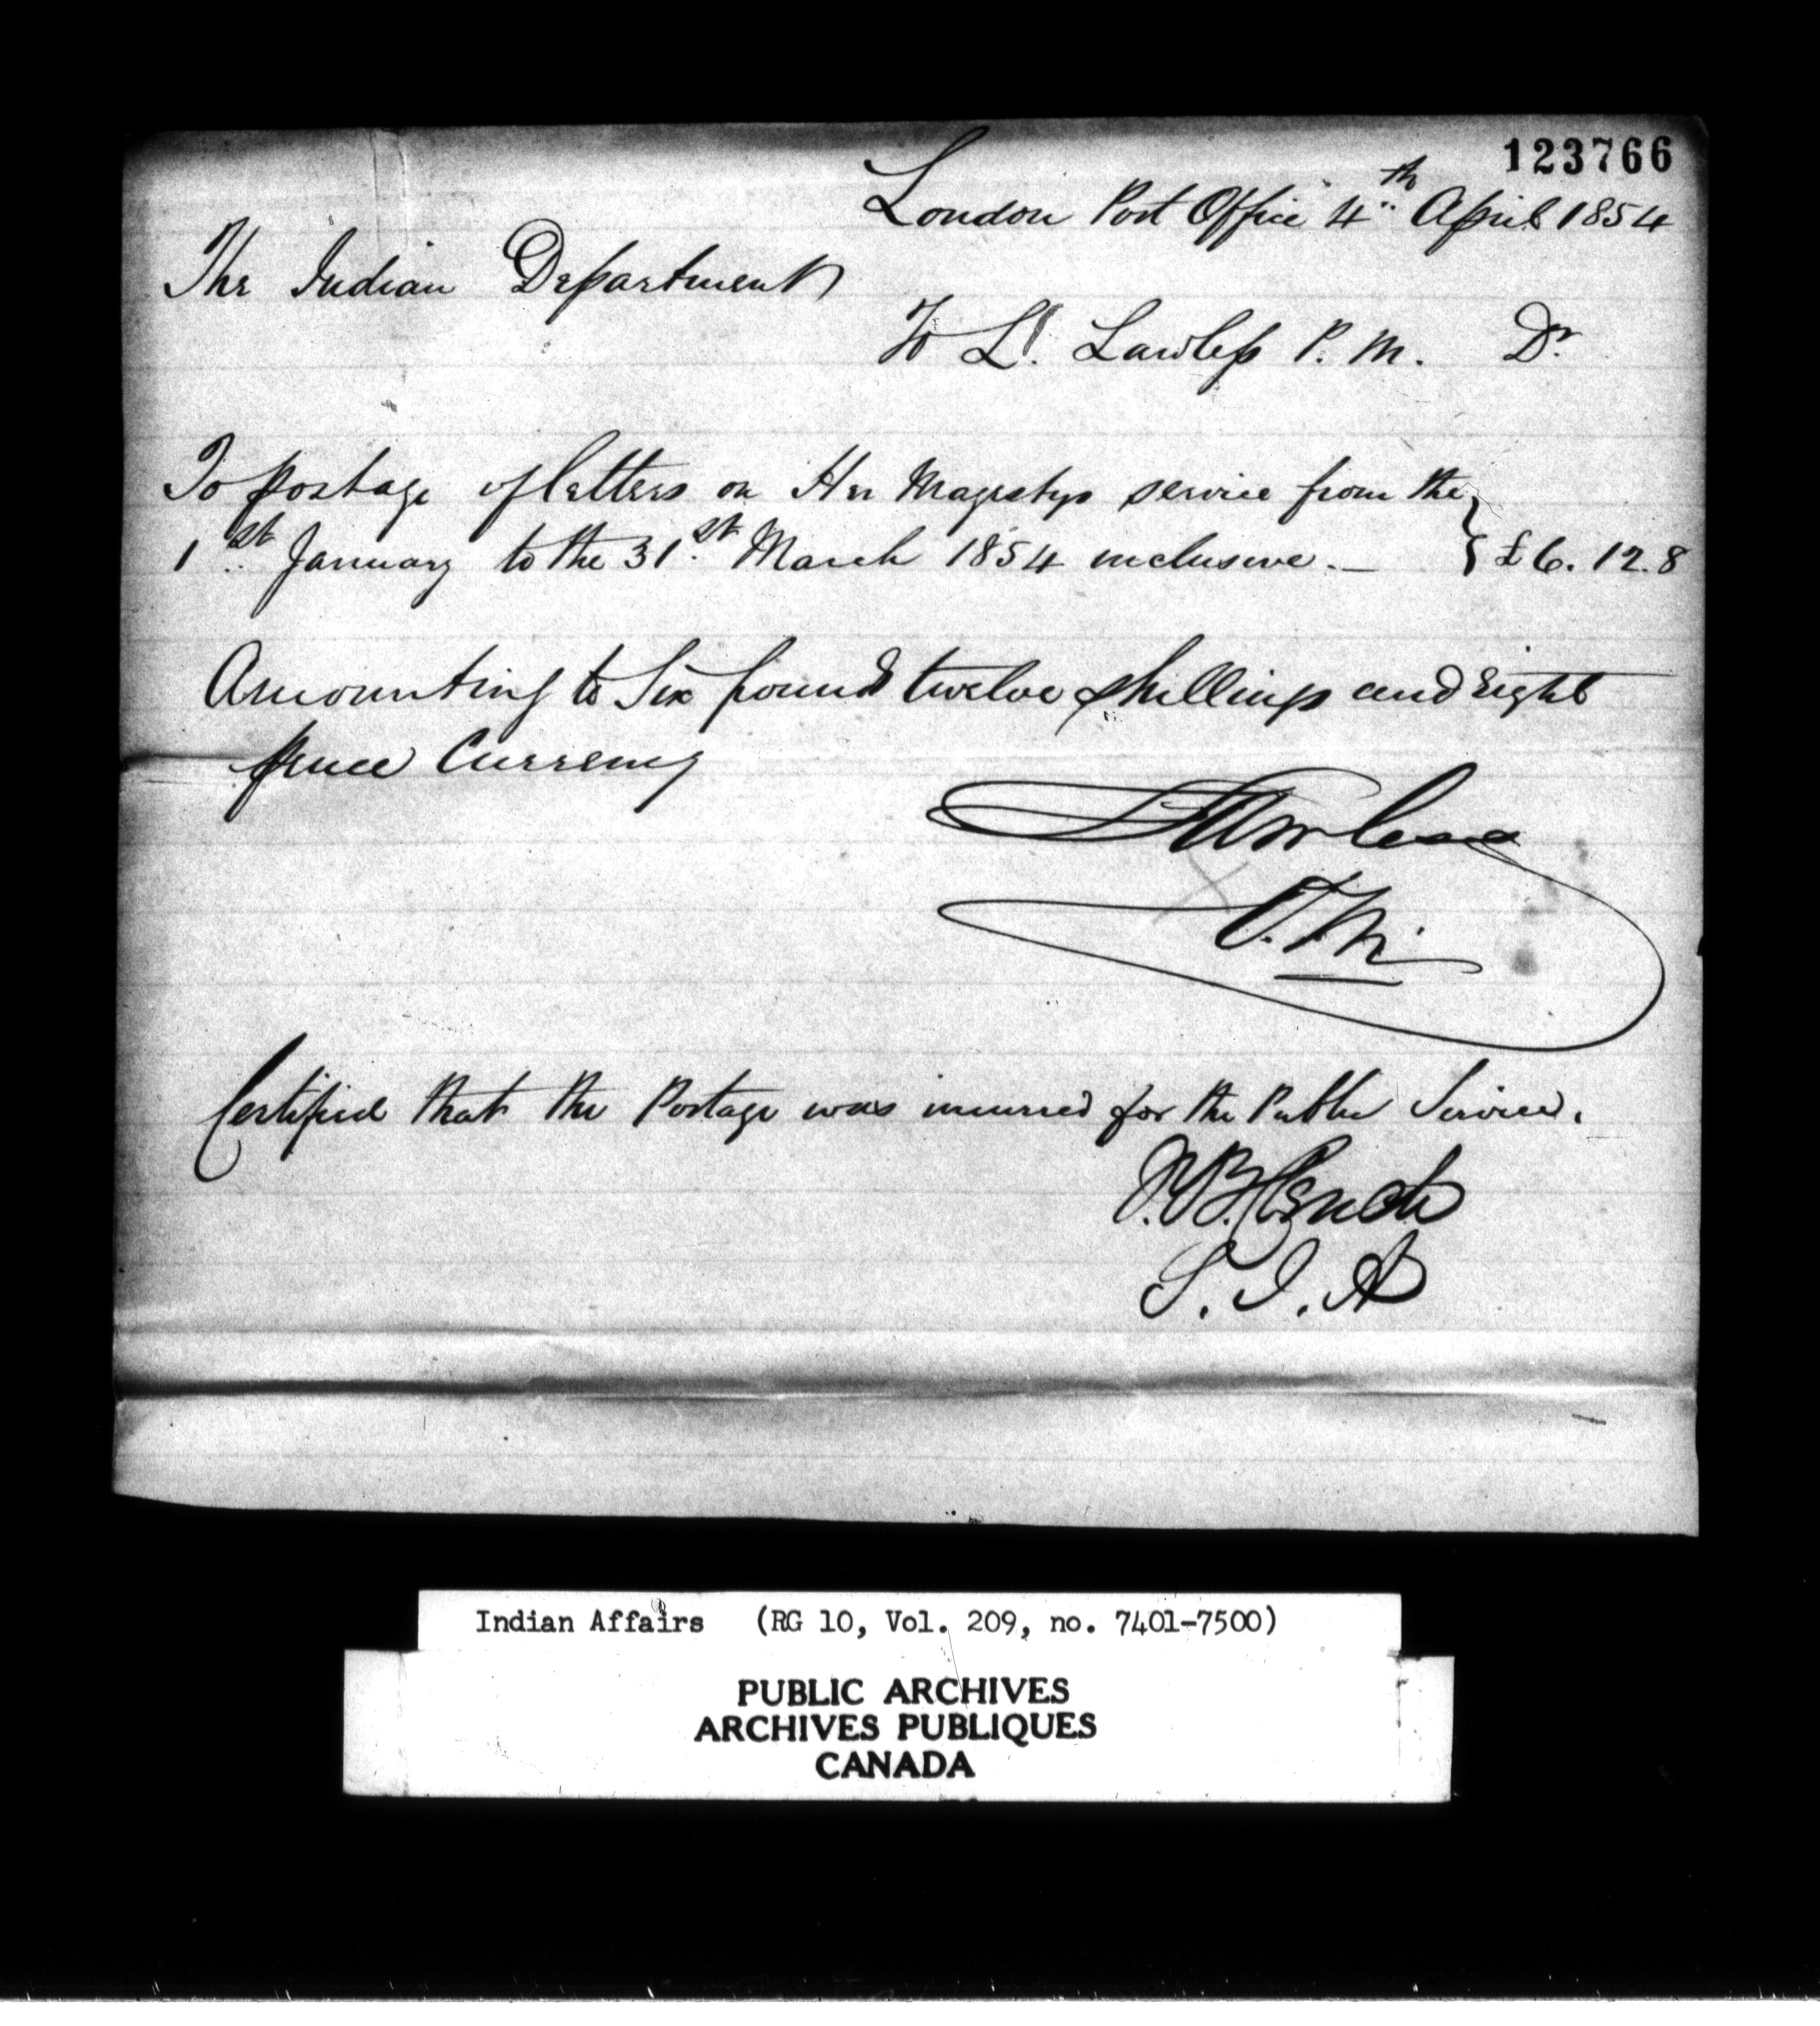 123766
London Post Office 4th April 1854
The Indian Department
To L. Lawless P. M. Dr.
To postage of letters on Her Magestys service from the
1st January to the 31st March 1854 inclusive. — } £6. 12. 8
Amounting to Six pound twelve shillings and eight
pence Currency
Lawless
P.M.
Certified that the Postage was incurred for the Public Service.
S. I. A
Indian Affairs (RG 10, Vol. 209, no. 7401-7500)
PUBLIC ARCHIVES
ARCHIVES PUBLIQUES
CANADA